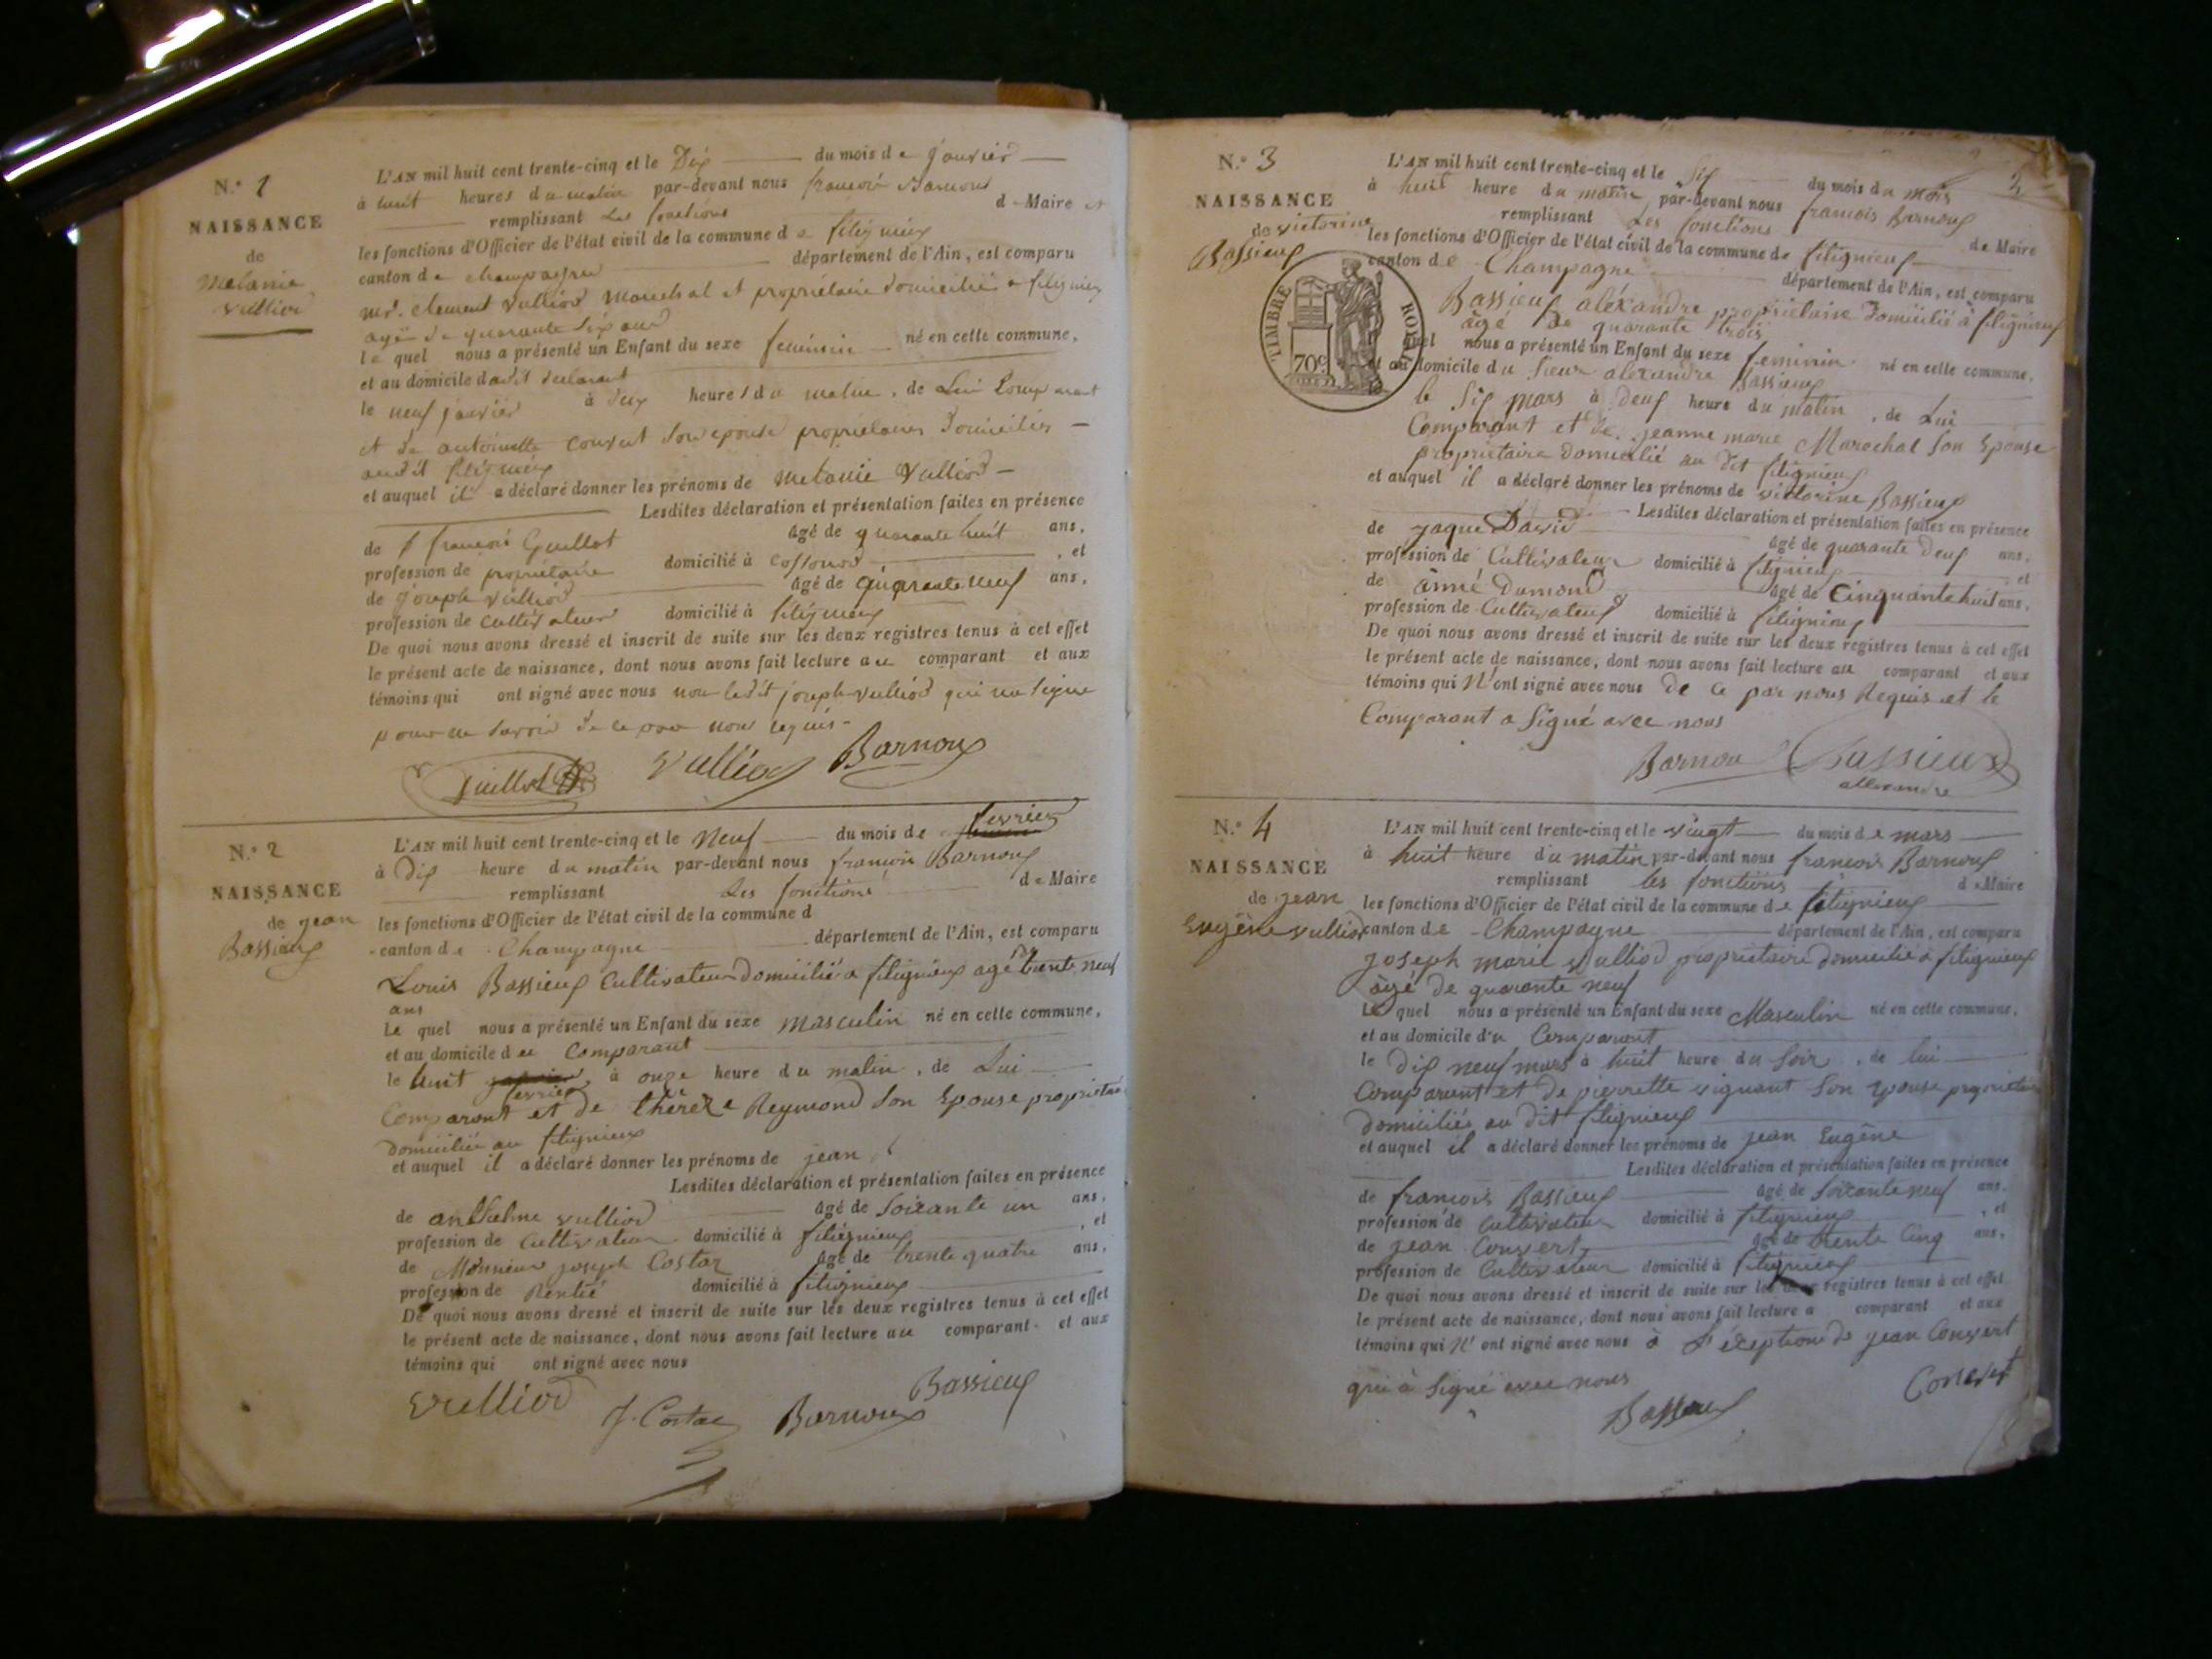 N.º 1
NAISSANCE
de
Melanie
Vulliod
L'AN mil huit cent trente-cinq et le Dix du mois de janvier
à huit heures du matin par-devant nous francois Barnoux
remplissant les fonctions de Maire et
les fonctions d'Officier de l'état civil de la commune de fitignieux
canton de champagne département de l'Ain, est comparu
mr. Clement Vulliod marechal et propriétaire domicilié a fitignieux
agé de quarante six ans
le quel nous a présenté un Enfant du sexe feminin né en cette commune,
et au domicile dudit declarant
le neuf janvier à deux heures du matin, de Lui Comparant
et de antoinette convert son epouse propriétaires domiciliés
audit fitignieux
et auquel il a déclaré donner les prénoms de melanie Vulliod
Lesdites déclaration et présentation faites en présence
de francois Guillot âgé de quarante huit ans,
profession de propriétaire domicilié à , et
de joseph vulliod âgé de quarante neuf ans,
profession de cultivateur domicilié à fitignieux
De quoi nous avons dressé et inscrit de suite sur les deux registres tenus à cet effet
le présent acte de naissance, dont nous avons fait lecture au comparant et aux
témoins qui ont signé avec nous non ledit joseph vulliod qui ne signe
pour ne savoir de ce par nous requis
Guillot Vulliod Barnoux
N.º 2
NAISSANCE
de jean
Bassieux
L'AN mil huit cent trente-cinq et le Neuf du mois de fevrier
à Dix heure du matin par-devant nous francois Barnoux
remplissant les fonctions de Maire
les fonctions d'Officier de l'état civil de la commune d
canton de Champagne département de l'Ain, est comparu
Louis Bassieux Cultivateur domicilié a fitignieux agé trente neuf
ans
Le quel nous a présenté un Enfant du sexe masculin né en cette commune,
et au domicile du Comparant
le huit janvier fevrier à onze heure du matin, de Lui
Comparant et de thérèze Reymond son Epouse propriétaire
domiciliée au fitignieux
et auquel il a déclaré donner les prénoms de jean
Lesdites déclaration et présentation faites en présence
de anthelme vulliod âgé de soixante un ans,
profession de Cultivateur domicilié à fitignieux , et
de Monsieur joseph Costaz âgé de trente quatre ans,
profession de Rentié domicilié à fitignieux
De quoi nous avons dressé et inscrit de suite sur les deux registres tenus à cet effet
le présent acte de naissance, dont nous avons fait lecture au comparant et aux
témoins qui ont signé avec nous
Vulliod J. Costaz Barnoux Bassieux
N.º 3
NAISSANCE
de victorine
Bassieux
2
L'AN mil huit cent trente-cinq et le Six du mois du mars
à huit heure du matin par-devant nous francois Barnoux
remplissant les fonctions de Maire
les fonctions d'Officier de l'état civil de la commune de fitignieux
canton de Champagne département de l'Ain, est comparu
TIMBRE ROYAL
70c
Bassieux aléxandre propriétaire domicilié à fitignieux
âgé de quarante trois
quel nous a présenté un Enfant du sexe feminin né en cette commune,
et au domicile du sieur alexandre Bassieux
le Six mars à deux heure du matin, de Lui
Comparant et de jeanne marie Marechal son Epouse
propriétaire domicilié au dit fitignieux
et auquel il a déclaré donner les prénoms de victorine Bassieux
Lesdites déclaration et présentation faites en présence
de jaque David âgé de quarante deux ans,
profession de Cultivateur domicilié à fitignieux , et
de aimé Dumond âgé de Cinquante huit ans,
profession de Cultivateur domicilié à fitignieux
De quoi nous avons dressé et inscrit de suite sur les deux registres tenus à cet effet
le présent acte de naissance, dont nous avons fait lecture au comparant et aux
témoins qui N'ont signé avec nous de ce par nous Requis et le
Comparant a Signé avec nous
Barnoux Bassieux
allexandre
N.º 4
NAISSANCE
de jean
Eugène vulliod
L'AN mil huit cent trente-cinq et le vingt du mois de mars
à huit heure du matin par-devant nous francois Barnoux
remplissant les fonctions de Maire
les fonctions d'Officier de l'état civil de la commune de fitignieux
canton de Champagne département de l'Ain, est comparu
joseph marie vulliod propriétaire domicilié à fitignieux
âgé de quarante neuf
Le quel nous a présenté un Enfant du sexe Masculin né en cette commune,
et au domicile du Comparant
le dix neuf mars à huit heure du Soir, de lui
Comparant et de pierrette vignant son epouse propriétaire
domiciliés au dit fitignieux
et auquel il a déclaré donner les prénoms de jean Eugène
Lesdites déclaration et présentation faites en présence
de francois Bassieux âgé de soixante neuf ans,
profession de Cultivateur domicilié à fitignieux , et
de jean Convert âgé de trente Cinq ans,
profession de Cultivateur domicilié à fitignieux
De quoi nous avons dressé et inscrit de suite sur les deux registres tenus à cet effet
le présent acte de naissance, dont nous avons fait lecture a comparant et aux
témoins qui N'ont signé avec nous à l'éxception de jean Convert
qui à signé avec nous
Convert